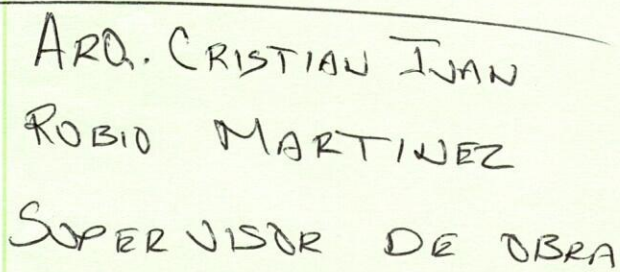 ARQ. CRISTIAN IVAN
RUBIO MARTINEZ
SUPERVISOR DE OBRA